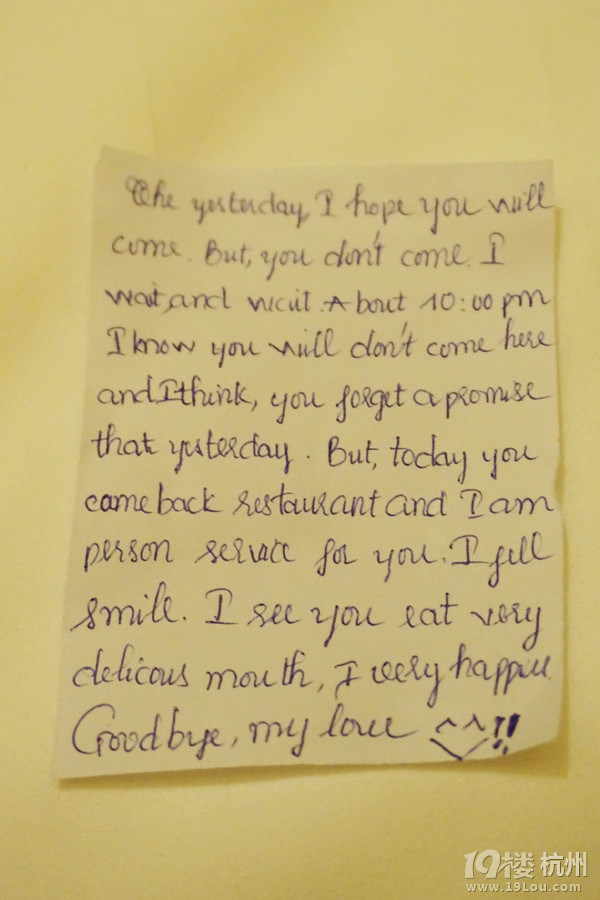 The yesterday, I hope you will
come. But, you don't come. I
wait, and wait. About 10:00 pm
I know you will don't come here
and I think, you forget a promise
that yesterday. But, today you
come back restaurant and I am
person service for you. I fell
smill. I see you eat very
delicous mouth, I very happy
Goodbye, my love ^^!!
19楼 杭州
www.19Lou.com